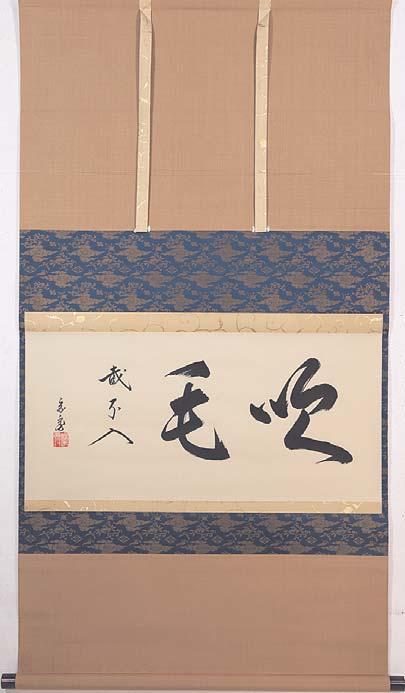 吹毛
截不入